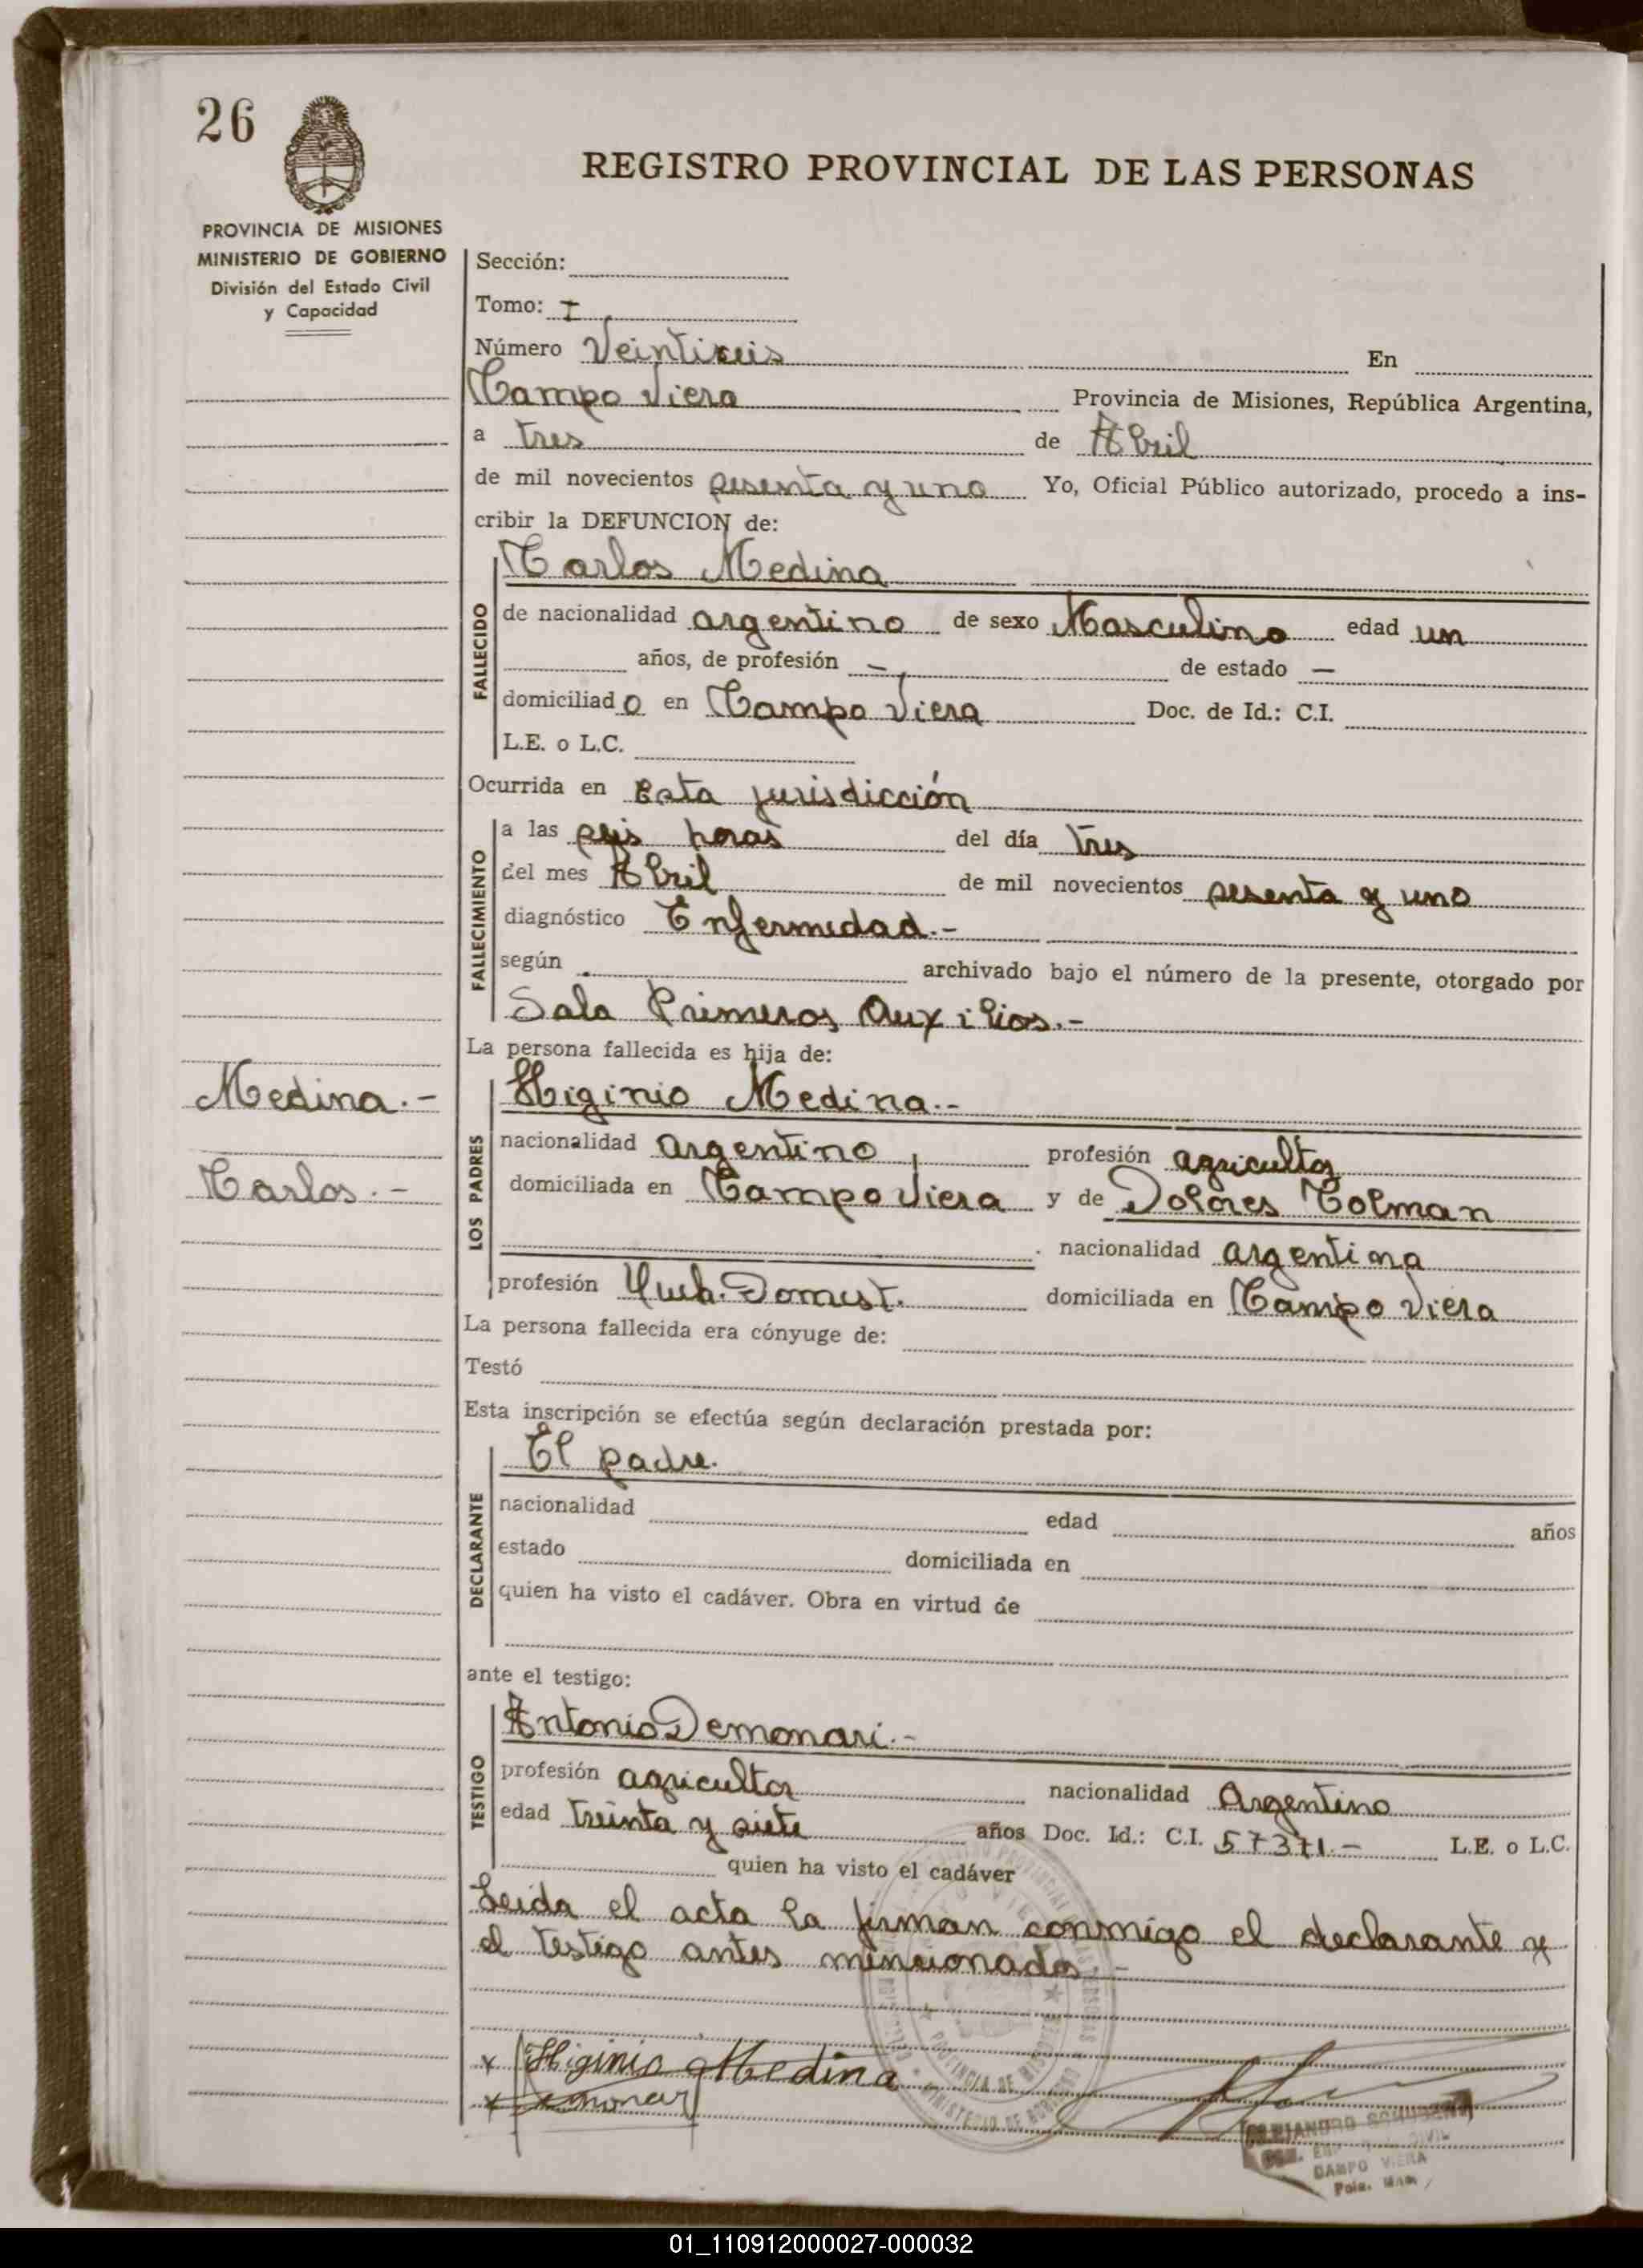 26
REGISTRO PROVINCIAL DE LAS PERSONAS
PROVINCIA DE MISIONES
MINISTERIO DE GOBIERNO
División del Estado Civil
y Capacidad
Sección:
Tomo: I
Número Veintiseis En
Campo Viera Provincia de Misiones, República Argentina,
a tres de Abril
de mil novecientos sesenta y uno Yo, Oficial Público autorizado, procedo a ins-
cribir la DEFUNCION de:
Carlos Medina
FALLECIDO
de nacionalidad argentino de sexo Masculino edad un
años, de profesión — de estado —
domiciliado en Campo Viera Doc. de Id.: C.I.
L.E. o L.C.
Ocurrida en Esta jurisdicción
FALLECIMIENTO
a las seis horas del día tres
del mes Abril de mil novecientos sesenta y uno
diagnóstico Enfermedad.-
según archivado bajo el número de la presente, otorgado por
Sala Primeros Auxilios.-
La persona fallecida es hija de:
Medina.-
Carlos.-
LOS PADRES
Higinio Medina.-
nacionalidad argentino profesión agricultor
domiciliada en Campo Viera y de Dolores Colman
nacionalidad argentina
profesión Domest. domiciliada en Campo Viera
La persona fallecida era cónyuge de:
Testó
Esta inscripción se efectúa según declaración prestada por:
El padre.
DECLARANTE
nacionalidad edad años
estado domiciliada en
quien ha visto el cadáver. Obra en virtud de
ante el testigo:
TESTIGO
Antonio Demonari.-
profesión agricultor nacionalidad Argentino
edad treinta y siete años Doc. Id.: C.I. 57371.- L.E. o L.C.
quien ha visto el cadáver
Leida el acta la firman conmigo el declarante y
el testigo antes mencionados.-
x Higinio Medina
x
CAMPO VIERA
01_110912000027-000032